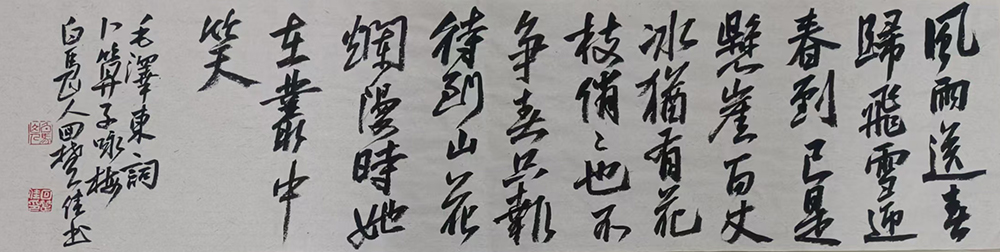 風雨送春
歸飛雪迎
春到已是
懸崖百丈
冰猶有花
枝俏〻也不
争春只報
待到山花
爛漫時她
在叢中
笑
毛澤東詞
卜算子咏梅
白馬人佳书